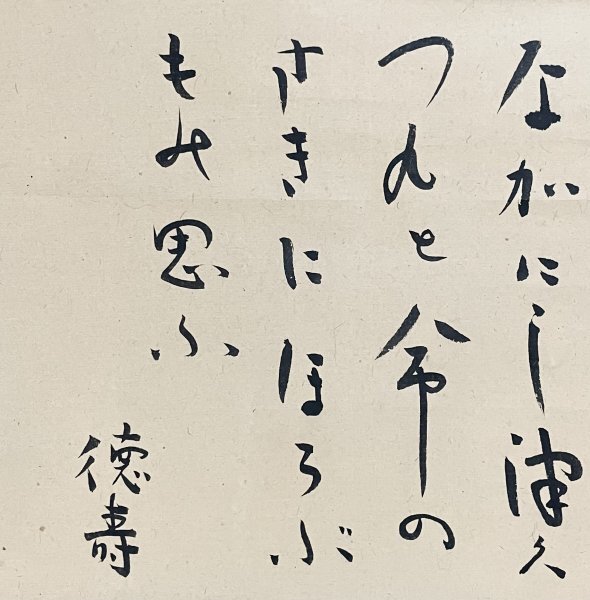 ながにし津久
つ九と命の
さきにほろぶ
もの思ふ
徳壽